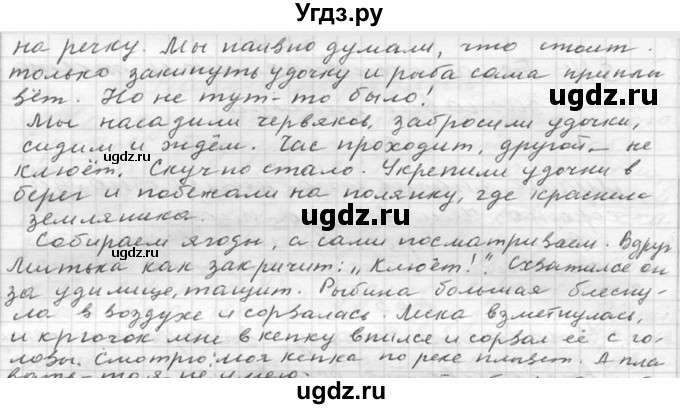 Угдз.ру
на речку. Мы наивно думали, что стоит
только закинуть удочку и рыба сама приплы
вёт. Но не тут-то было!
Мы насадили червяков, забросили удочки,
сидим и ждём. Час проходит, другой – не
клюёт. Скучно стало. Укрепили удочки в
берег и побежали на полянку, где краснела
земляника.
Собираем ягоды, а сами посматриваем. Вдруг
Митька как закричит: „Клюёт!". Схватился он
за удилище, тащит. Рыбина большая блесну-
ла в воздухе и сорвалась. Леска взметнулась,
и крючок мне в кепку впился и сорвал её с го-
ловы. Смотрю: моя кепка по реке плывёт. А пла
вать-то я не умею.
uгдз.ru
uгдз.ru
uгдз.ru
uгдз.ru
uгдз.ru
uгдз.ru
uгдз.ru
uгдз.ru